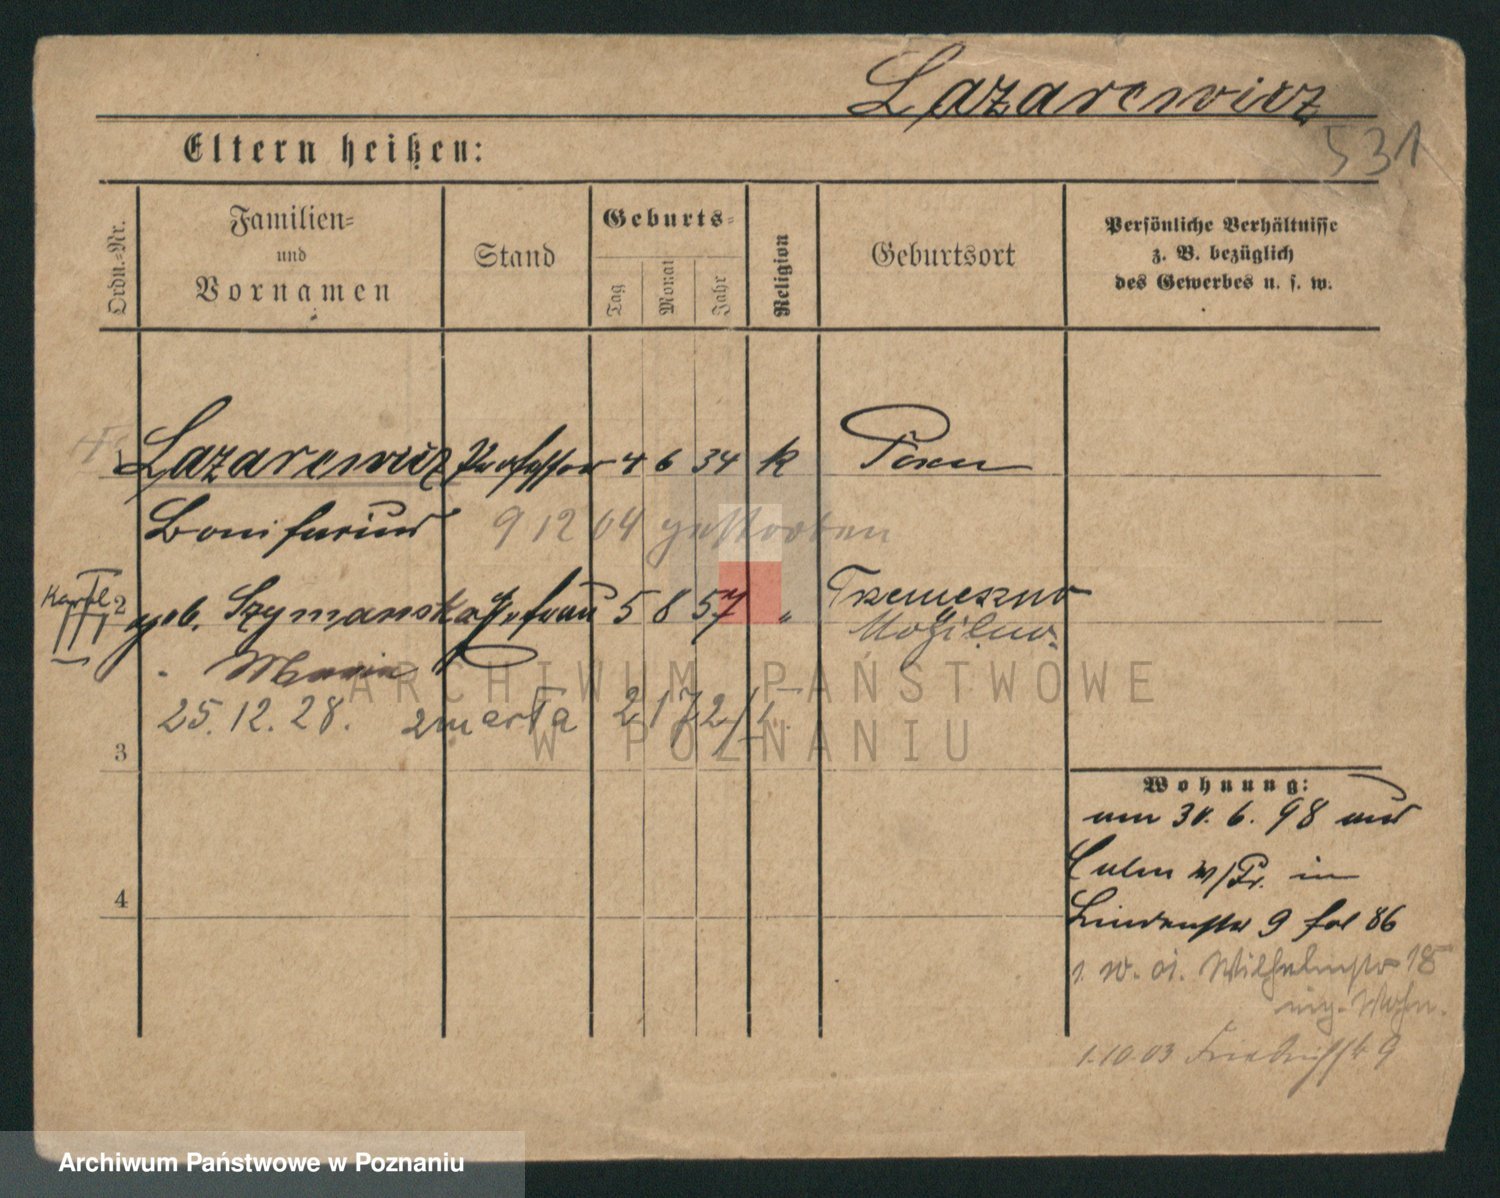 Lazarewicz
531
Eltern heißen:
Ordn.-Nr.
Familien-
und
Vornamen
Stand
Geburts-
Tag
Monat
Jahr
Religion
Geburtsort
Persönliche Verhältnisse
z. B. bezüglich
des Gewerbes u. s. w.
1 Lazarewicz Professor 4 6 34 k Posen
Bonifacius 9 12 04 gestorben
2 geb. Szymanska Ehefrau 5 8 57 " Trzemeszno
Mogilno
Maria
25.12.28. zmarła
3
Wohnung:
am 30. 6. 98 aus
Culm w/Pr. in
4
Lindenstr 9 fol 86
Wilhelmstr 18
Wohn.
1.10.03 Friedrichstr 9
ARCHIWUM PAŃSTWOWE
W POZNANIU
Archiwum Państwowe w Poznaniu